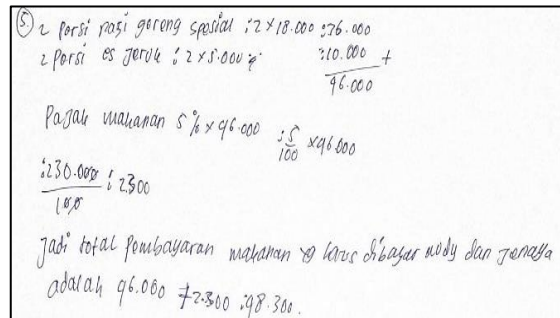 5. 2 porsi nasi goreng spesial : 2 x 18.000 : 36.000
2 porsi es jeruk : 2 x 5.000 : 10.000 +
46.000
Pajak makanan 5% x 46.000 : 5/100 x 46.000
: 230.000/100 : 2.300
Jadi total pembayaran makanan yg harus dibayar dan
adalah 46.000 + 2.300 : 48.300.